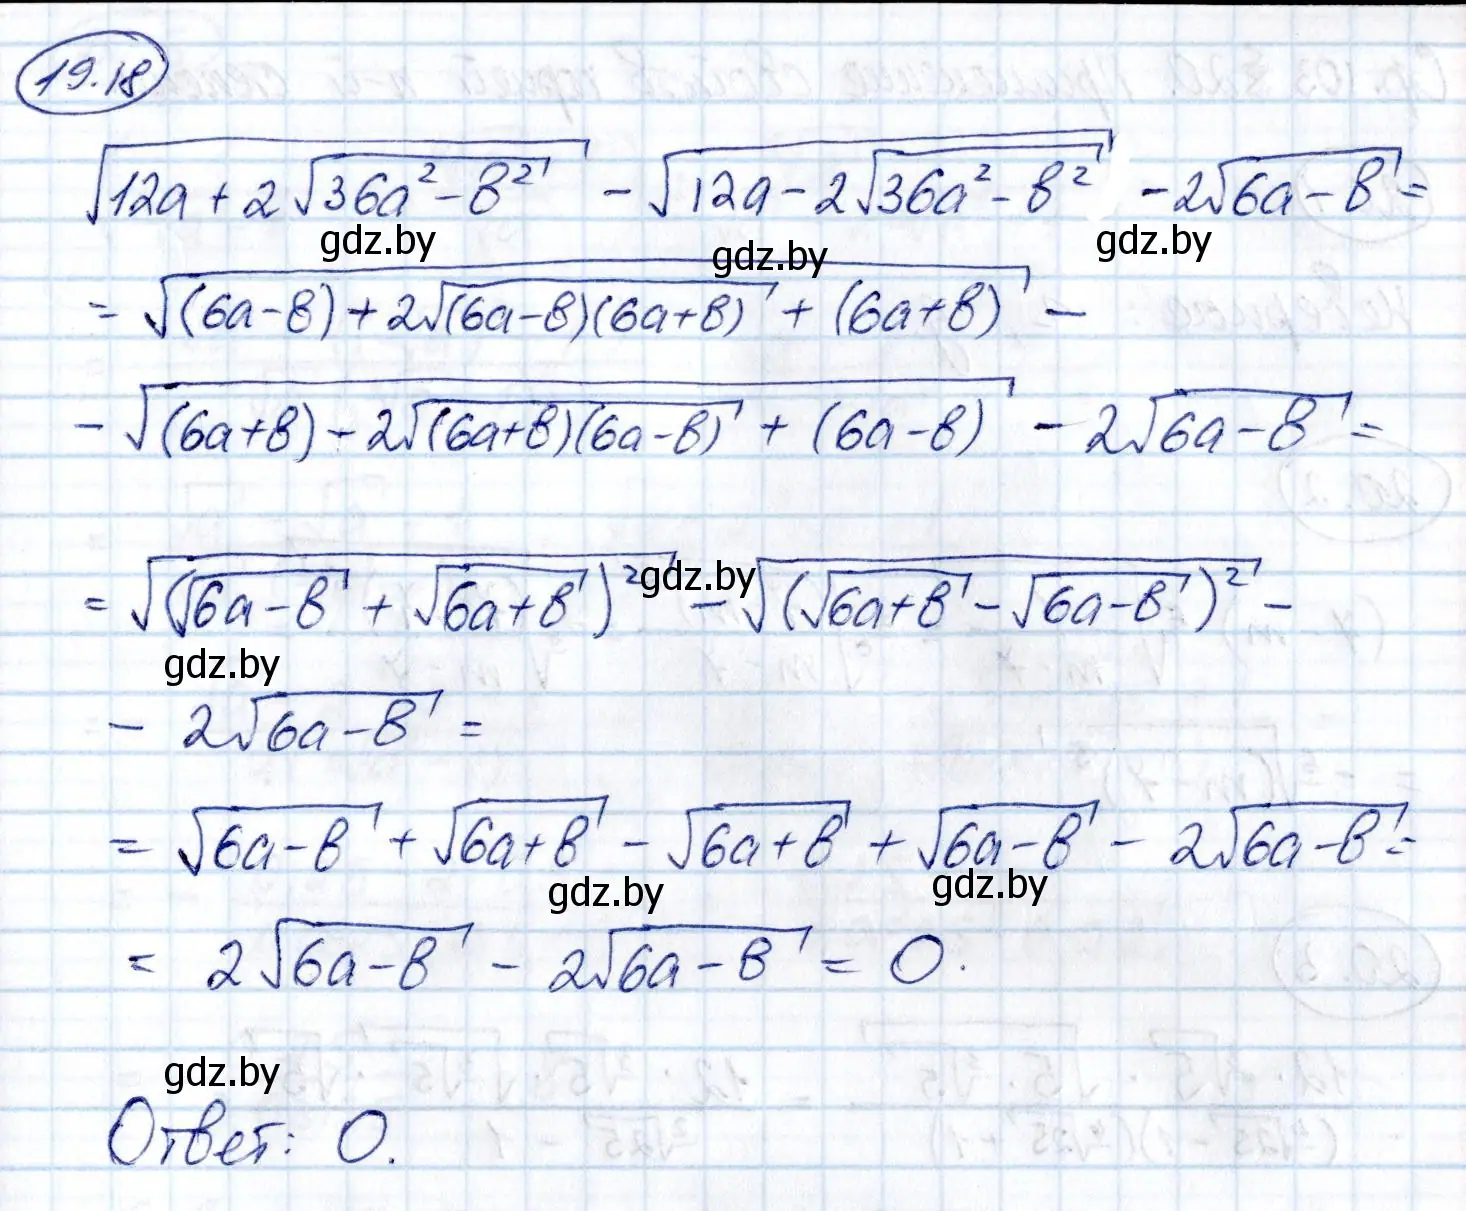 19.18
√(12a + 2√(36a² − b²)) − √(12a − 2√(36a² − b²)) − 2√(6a − b) =
gdz.by gdz.by gdz.by
= √((6a − b) + 2√((6a − b)(6a + b)) + (6a + b)) −
− √((6a + b) − 2√((6a + b)(6a − b)) + (6a − b)) − 2√(6a − b) =
= √((√(6a − b) + √(6a + b))²) − √((√(6a + b) − √(6a − b))²) −
gdz.by
gdz.by
− 2√(6a − b) =
= √(6a − b) + √(6a + b) − √(6a + b) + √(6a − b) − 2√(6a − b) =
gdz.by gdz.by
= 2√(6a − b) − 2√(6a − b) = 0.
gdz.by
Ответ: 0.